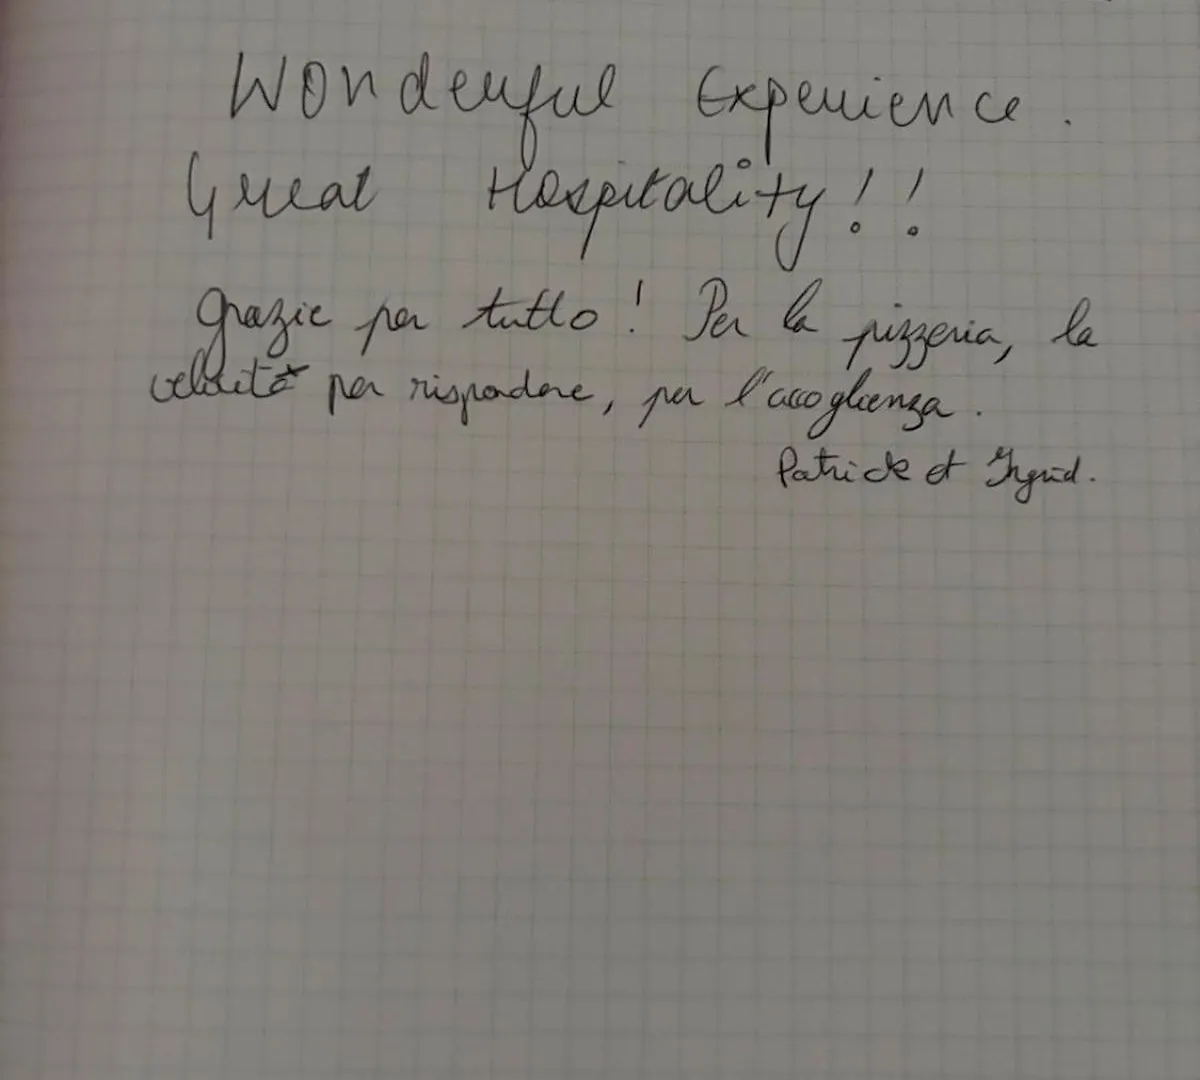 Wonderful Experience.
Great Hospitality!!
Grazie per tutto! Per la pizzeria, la
velocità per rispondere, per l'accoglienza.
Patrick et Ingrid.